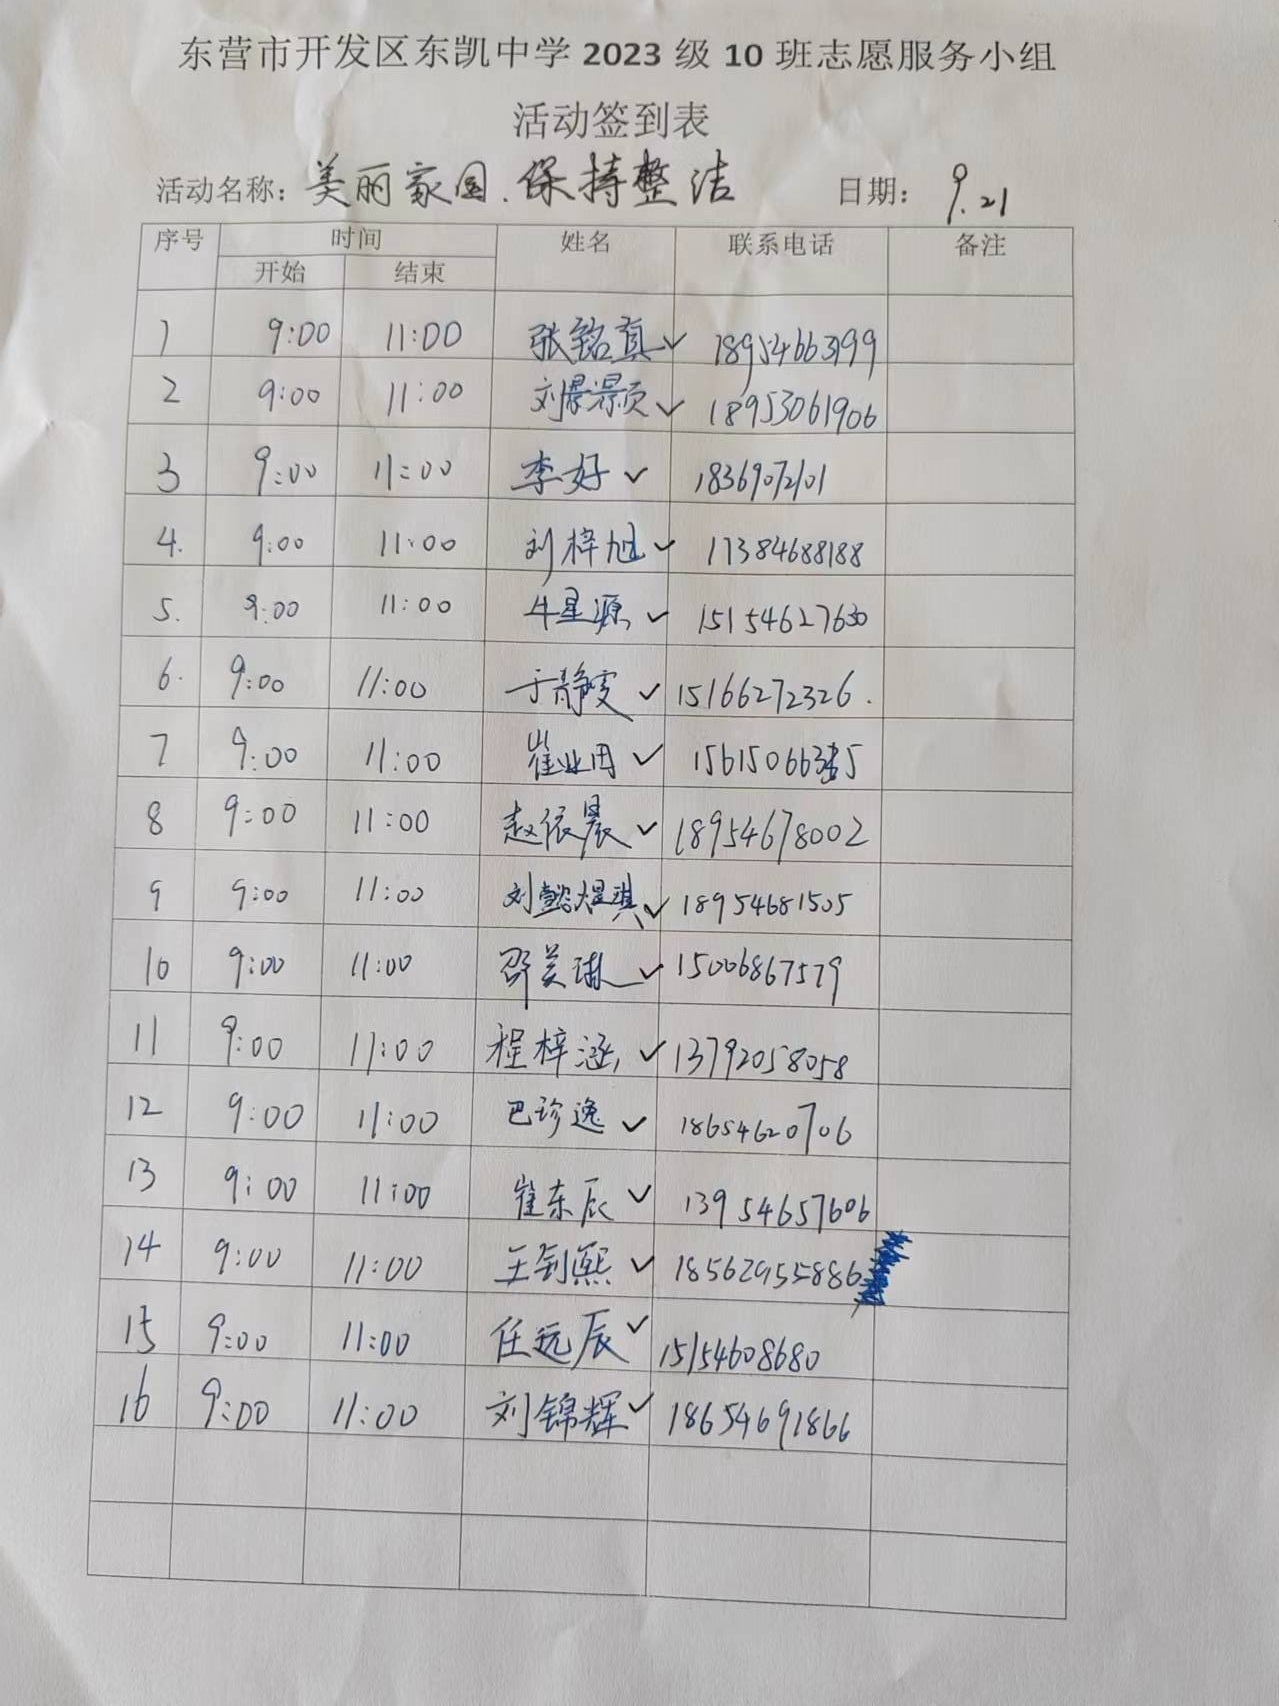 东营市开发区东凯中学 2023 级 10 班志愿服务小组
活动签到表
活动名称: 美丽家园.保持整洁 日期: 9.21
序号 时间 姓名 联系电话 备注
开始 结束
1 9:00 11:00 张铭真 18954663199
2 9:00 11:00 刘景灏 18953061906
3 9:00 11:00 李好 18369072101
4. 9:00 11:00 刘梓旭 17384688188
5. 9:00 11:00 牛星源 15154627630
6. 9:00 11:00 于静雯 15166272326.
7 9:00 11:00 崔业用
8 9:00 11:00 赵依晨 18954678002
9 9:00 11:00 刘懿煜琪 18954681505
10 9:00 11:00 邵美琳 15006867579
11 9:00 11:00 程梓涵 13792058058
12 9:00 11:00 巴珍逸 18654620706
13 9:00 11:00 崔东辰 13954657606
14 9:00 11:00 王钊熙 18562955886
15 9:00 11:00 任远辰 15154608680
16 9:00 11:00 刘锦辉 18654691866